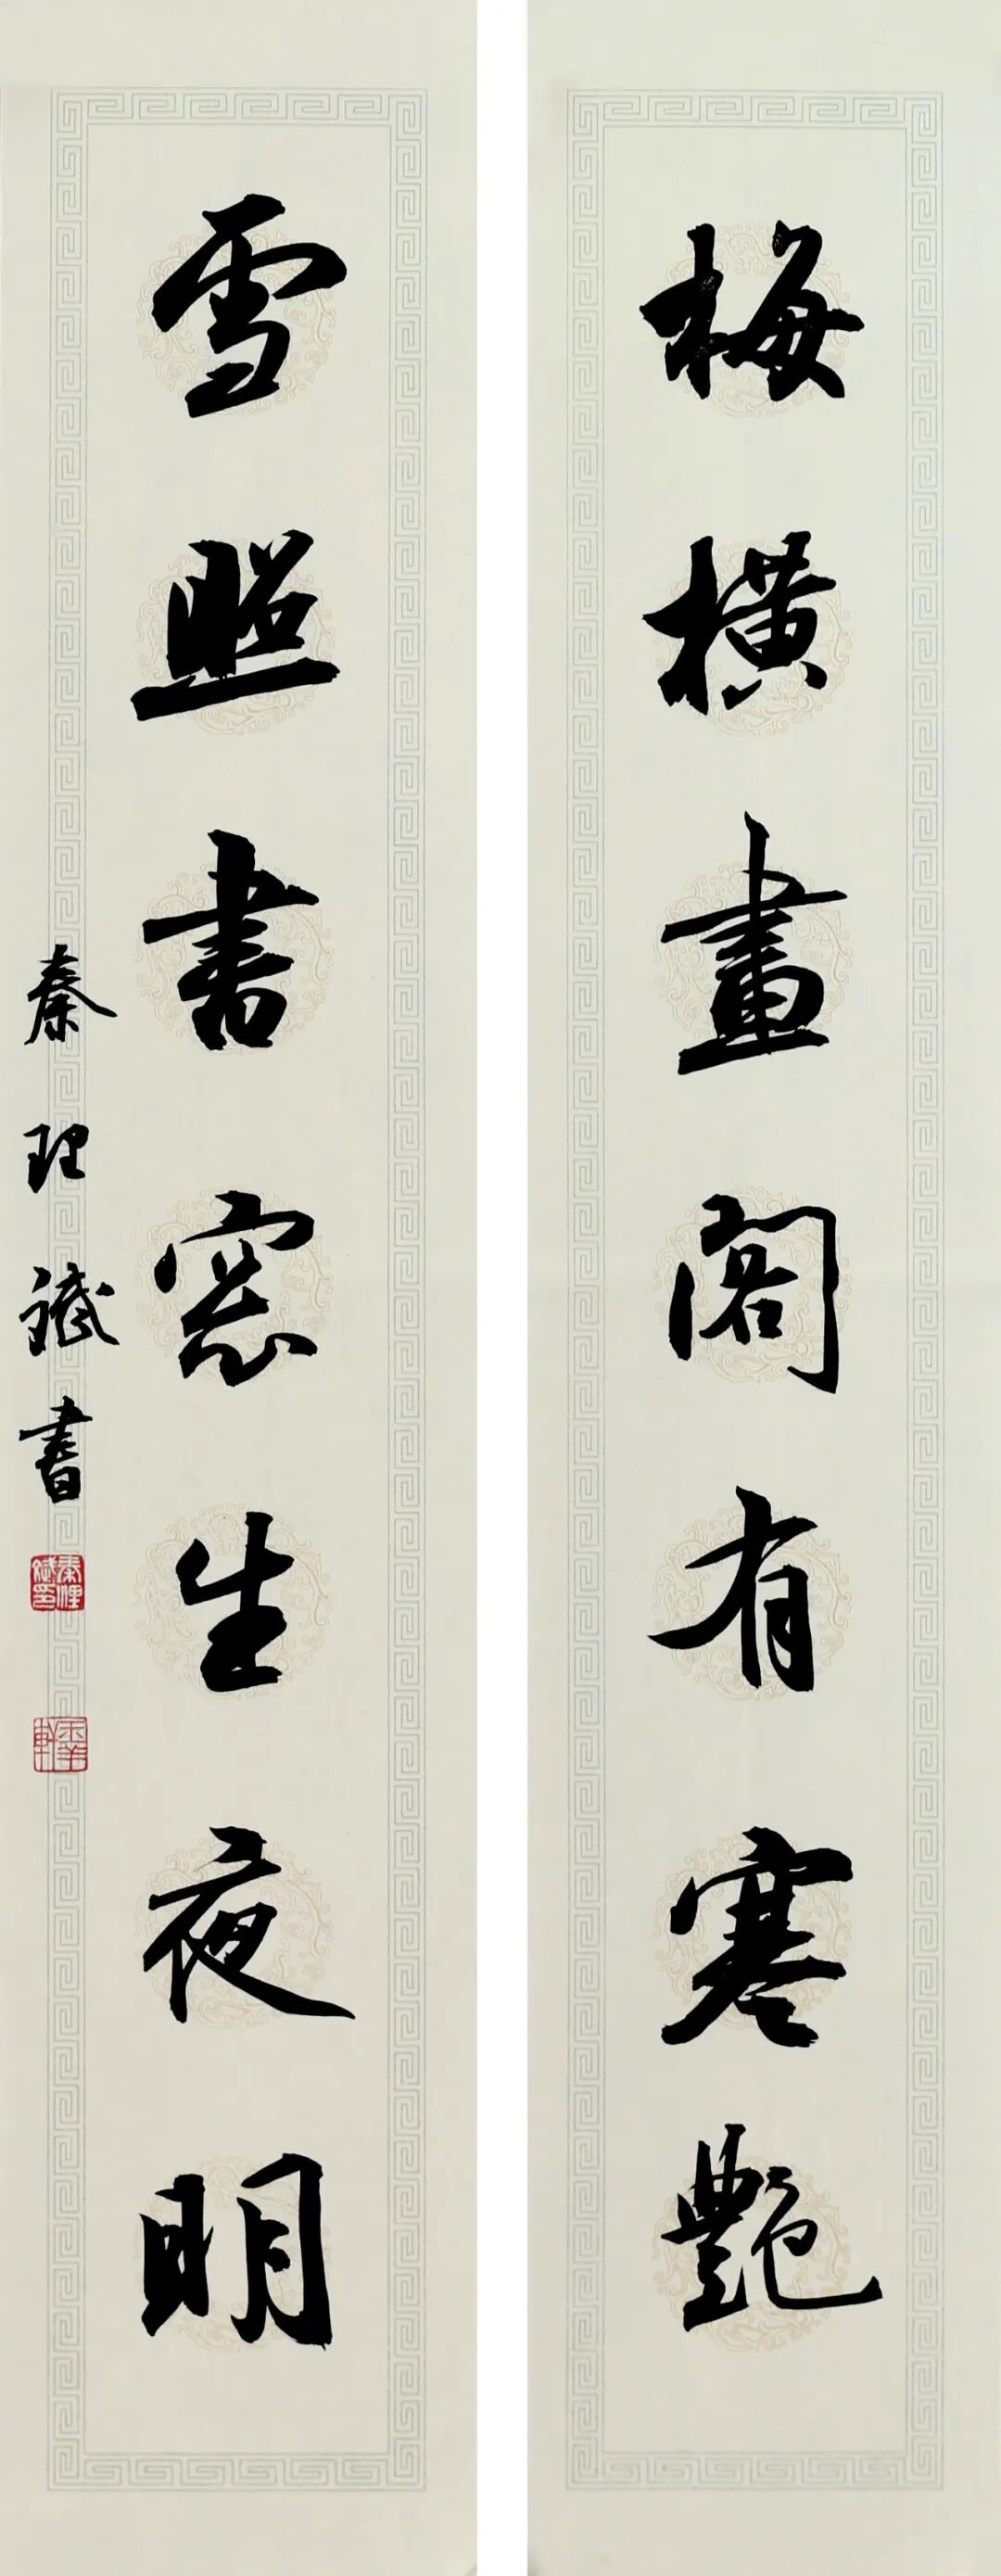 梅橫畫閣有寒艷
雪照書窓生夜明
秦理斌書